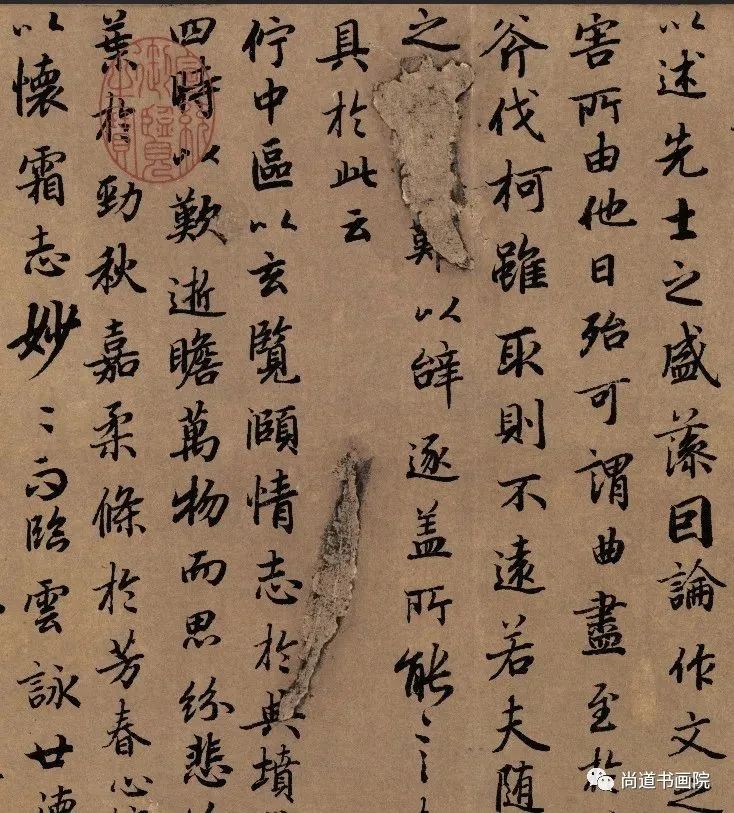 以述先士之盛藻因論作文之
害所由他日殆可謂曲盡至於
斧伐柯雖取則不遠若夫随
之難以辝逐盖所能〻言
具於此云
佇中區以玄覽頤情志於典墳
四時以歎逝瞻萬物而思紛悲
葉於勁秋嘉柔條於芳春心
以懷霜志妙〻而臨雲詠世德
宣統御覽之寶
尚道书画院